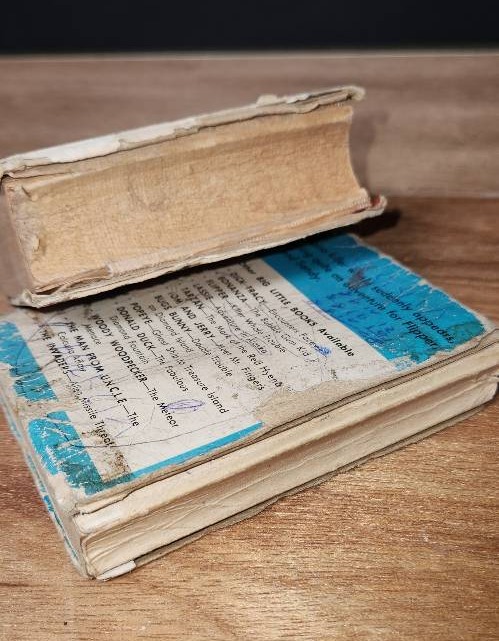 suddenly appeared
adventure for Flipper
Other BIG LITTLE BOOKS Available
DICK TRACY—Encounters Facey
BONANZA—The Bubble Gum Kid
FLIPPER—Killer Whale Trouble
TARZAN—The Mark of the Red Hyena
TOM AND JERRY—Meet Mr. Fingers
BUGS BUNNY—Double Trouble
Island
POPEYE—Ghost Ship to Treasure Island
DONALD DUCK—The Fabulous
Diamond Fountain
WOODY WOODPECKER—The Meteor
THE MAN FROM U.N.C.L.E.—The
Calcutta Affair
THE INVADERS—Alien Missile Threat